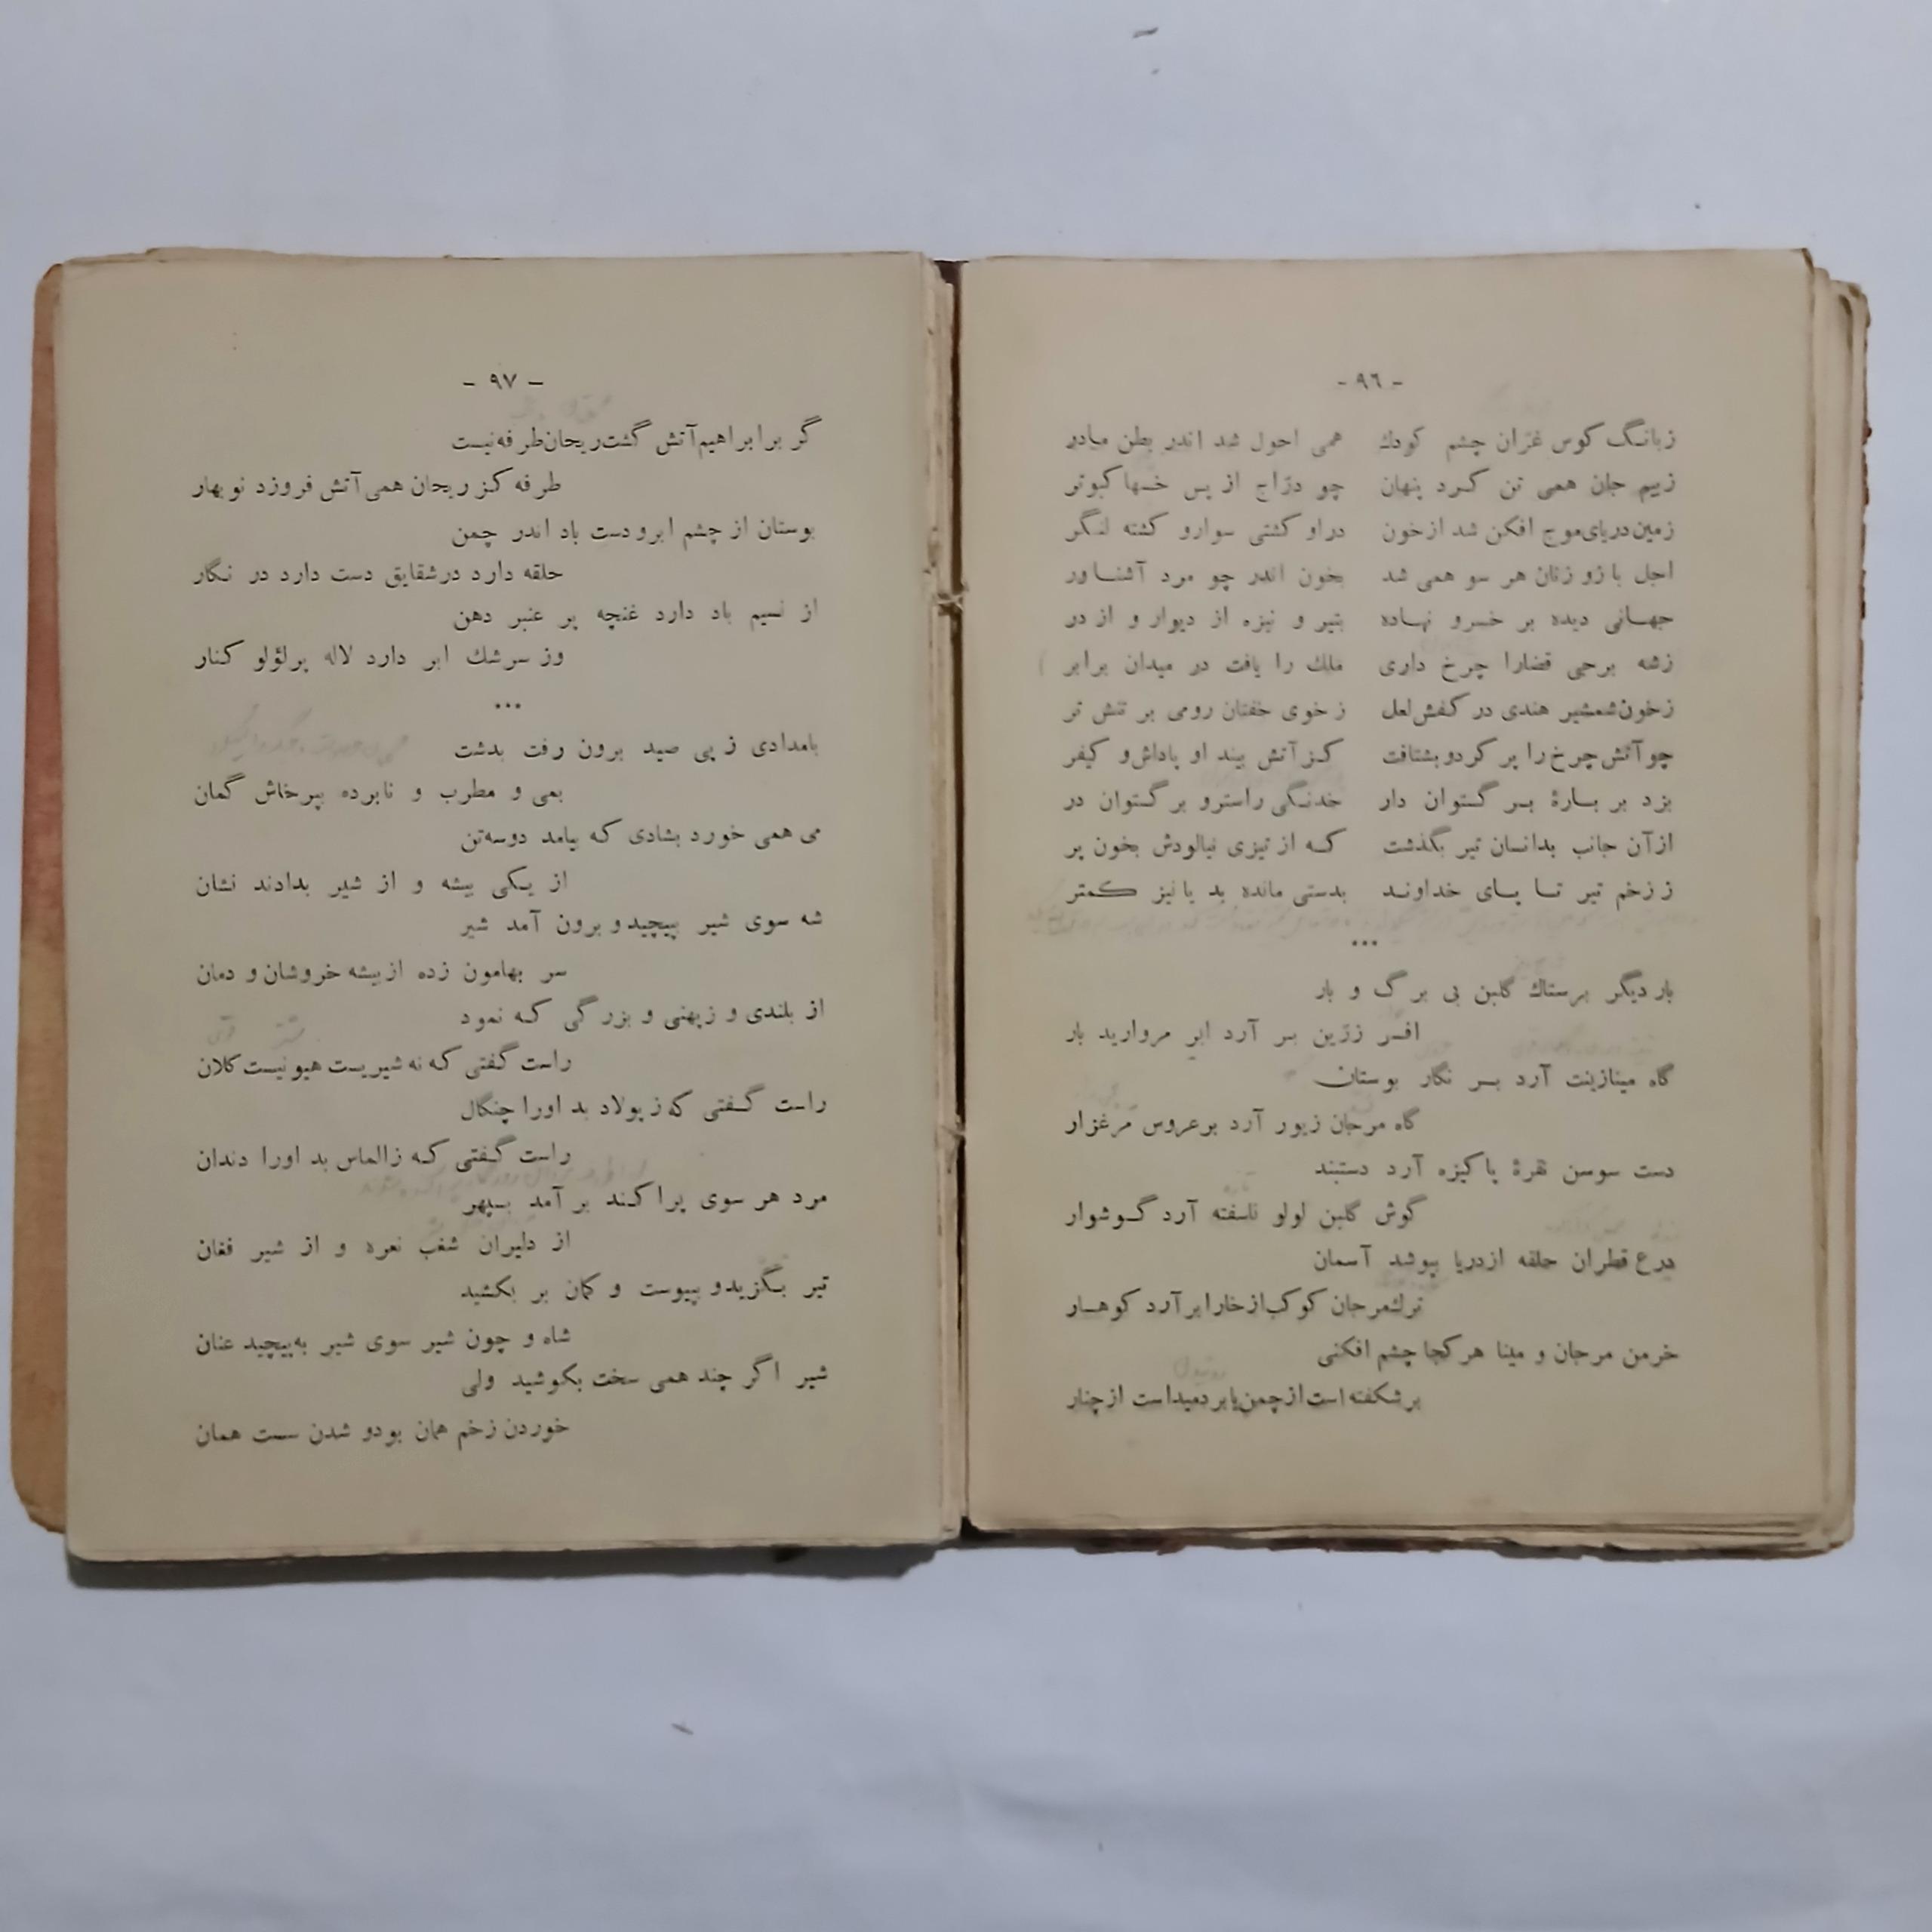 - ٩٦ -
زبانگ کوس غزان چشم کودك همی احول شد اندر بطن مادر
زبیم جان همی تن کرد پنهان چو درّاج از پس خسها کبوتر
زمین دریای موج افکن شد ازخون دراو کشتی سوارو کشته لنگر
اجل بازو زنان هر سو همی شد بخون اندر چو مرد آشناور
جهانی دیده بر خسرو نهاده بتیر و نیزه از دیوار و از در
زشه برجی قضارا چرخ داری ملك را یافت در میدان برابر
زخون شمشیر هندی در کفش لعل ز خوی خفتان رومی بر تنش تر
چو آتش چرخ را پر کردو بشتافت کز آتش بیند او پاداش و کیفر
بزد بر بارۀ بر گستوان دار خدنگی راسترو بر گستوان در
ازآن جانب بدانسان تیر بگذشت که از تیزی نیالودش بخون پر
ز زخم تیر تا پای خداوند بدستی مانده بد یا نیز کمتر
***
بار دیگر برستاك گلبن بی برگ و بار
افسر زرّین بر آرد ابر مروارید بار
گاه مینازینت آرد بر نگار بوستان
گاه مرجان زیور آرد برعروس مرغزار
دست سوسن نقرۀ پاکیزه آرد دستبند
گوش گلبن لولو ناسفته آرد گوشوار
درع قطران حلقه ازدریا بپوشد آسمان
ترك مرجان کوکب ازخارا بر آرد کوهسار
خرمن مرجان و مینا هرکجا چشم افکنی
برشکفته است از چمن یا بردمیداست ازچنار
- ٩٧ -
گر برابراهیم آتش گشت ریحان طرفه نیست
طرفه کز ریحان همی آتش فروزد نوبهار
بوستان از چشم ابرو دست باد اندر چمن
حلقه دارد درشقایق دست دارد در نگار
از نسیم باد دارد غنچه پر عنبر دهن
وز سرشك ابر دارد لاله پرلؤلو کنار
***
بامدادی ز پی صید برون رفت بدشت
بمی و مطرب و نابرده بپرخاش گمان
می همی خورد بشادی که بیامد دوسه تن
از یکی بیشه و از شیر بدادند نشان
شه سوی شیر بپیچید و برون آمد شیر
سر بهامون زده از بیشه خروشان و دمان
از بلندی و زپهنی و بزرگی که نمود
راست گفتی که نه شیریست هیونیست کلان
راست گفتی که ز پولاد بد اورا چنگال
راست گفتی که زالماس بد اورا دندان
مرد هر سوی پراکند بر آمد بسپهر
از دلیران شغب نعره و از شیر فغان
تیر بگزیدو بپیوست و کمان بر بکشید
شاه و چون شیر سوی شیر به پیچید عنان
شیر اگر چند همی سخت بکوشید ولی
خوردن زخم همان بودو شدن سست همان